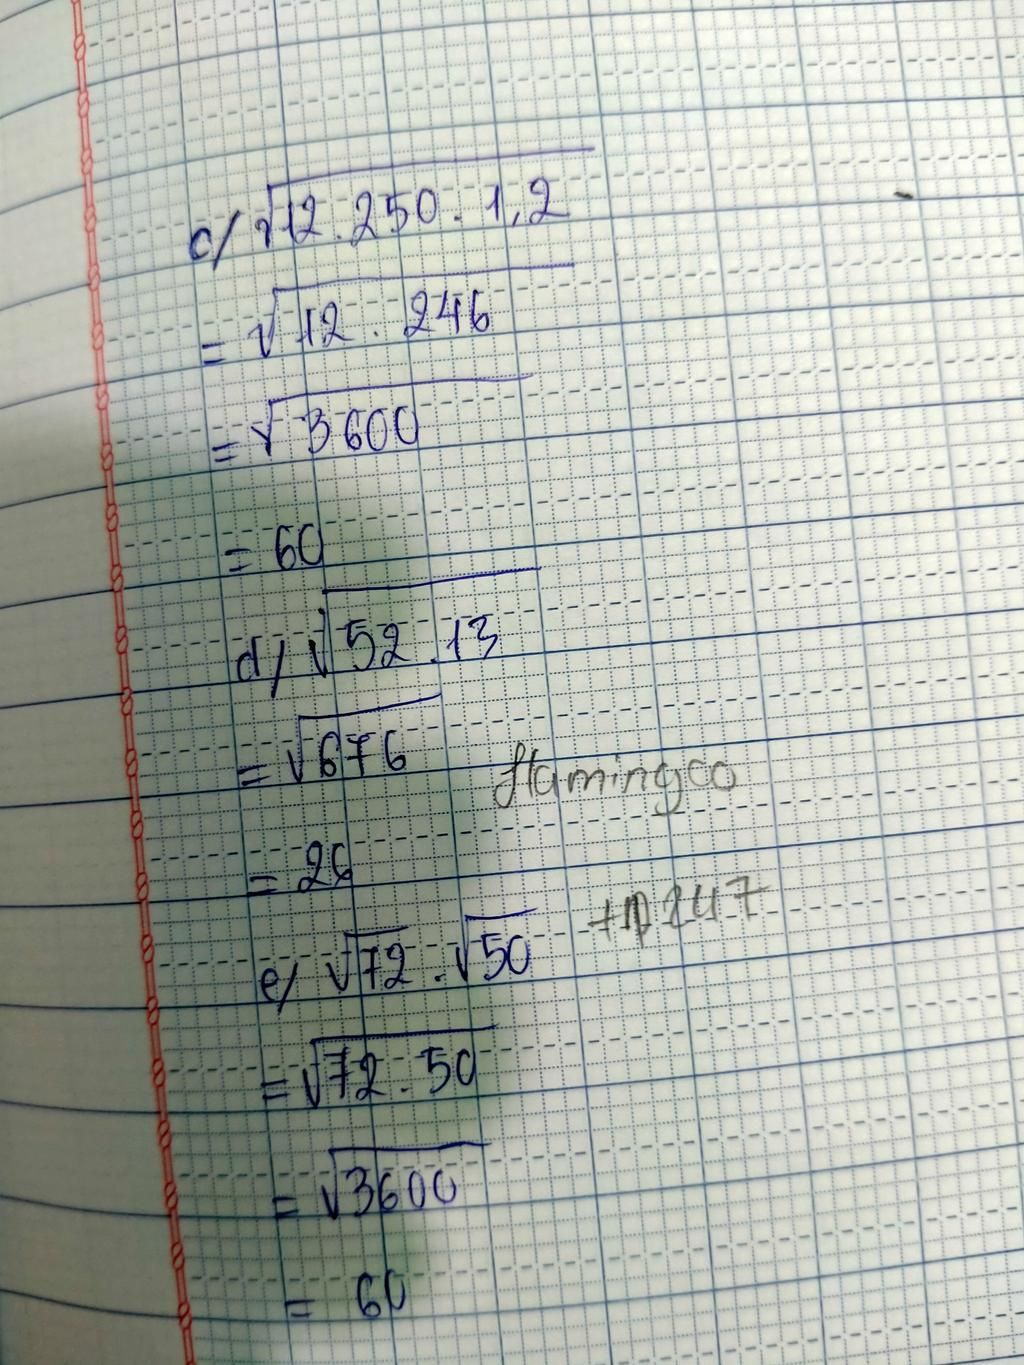 c/ √12.250.1,2
= √12. 246
= √3600
= 60
d/ √52.13
= √676
= 26
flamingco
e/ √72.√50
= √72.50
= √3600
= 60